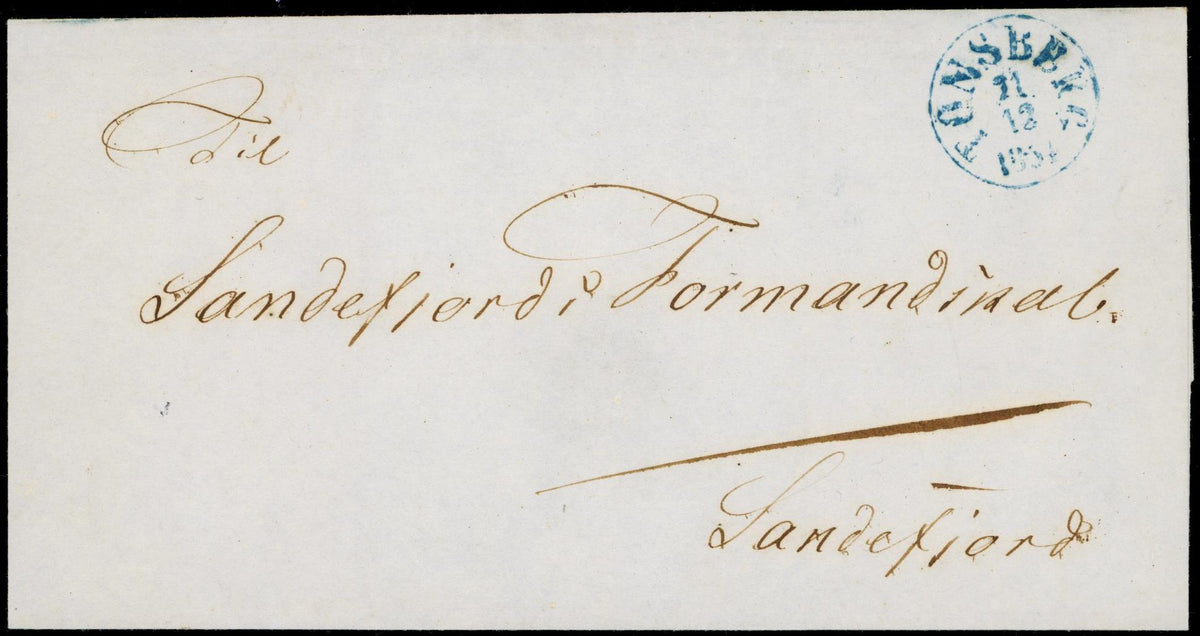 TØNSBERG
21
12
Til
Sandefjords Formandskab.
Sandefjord